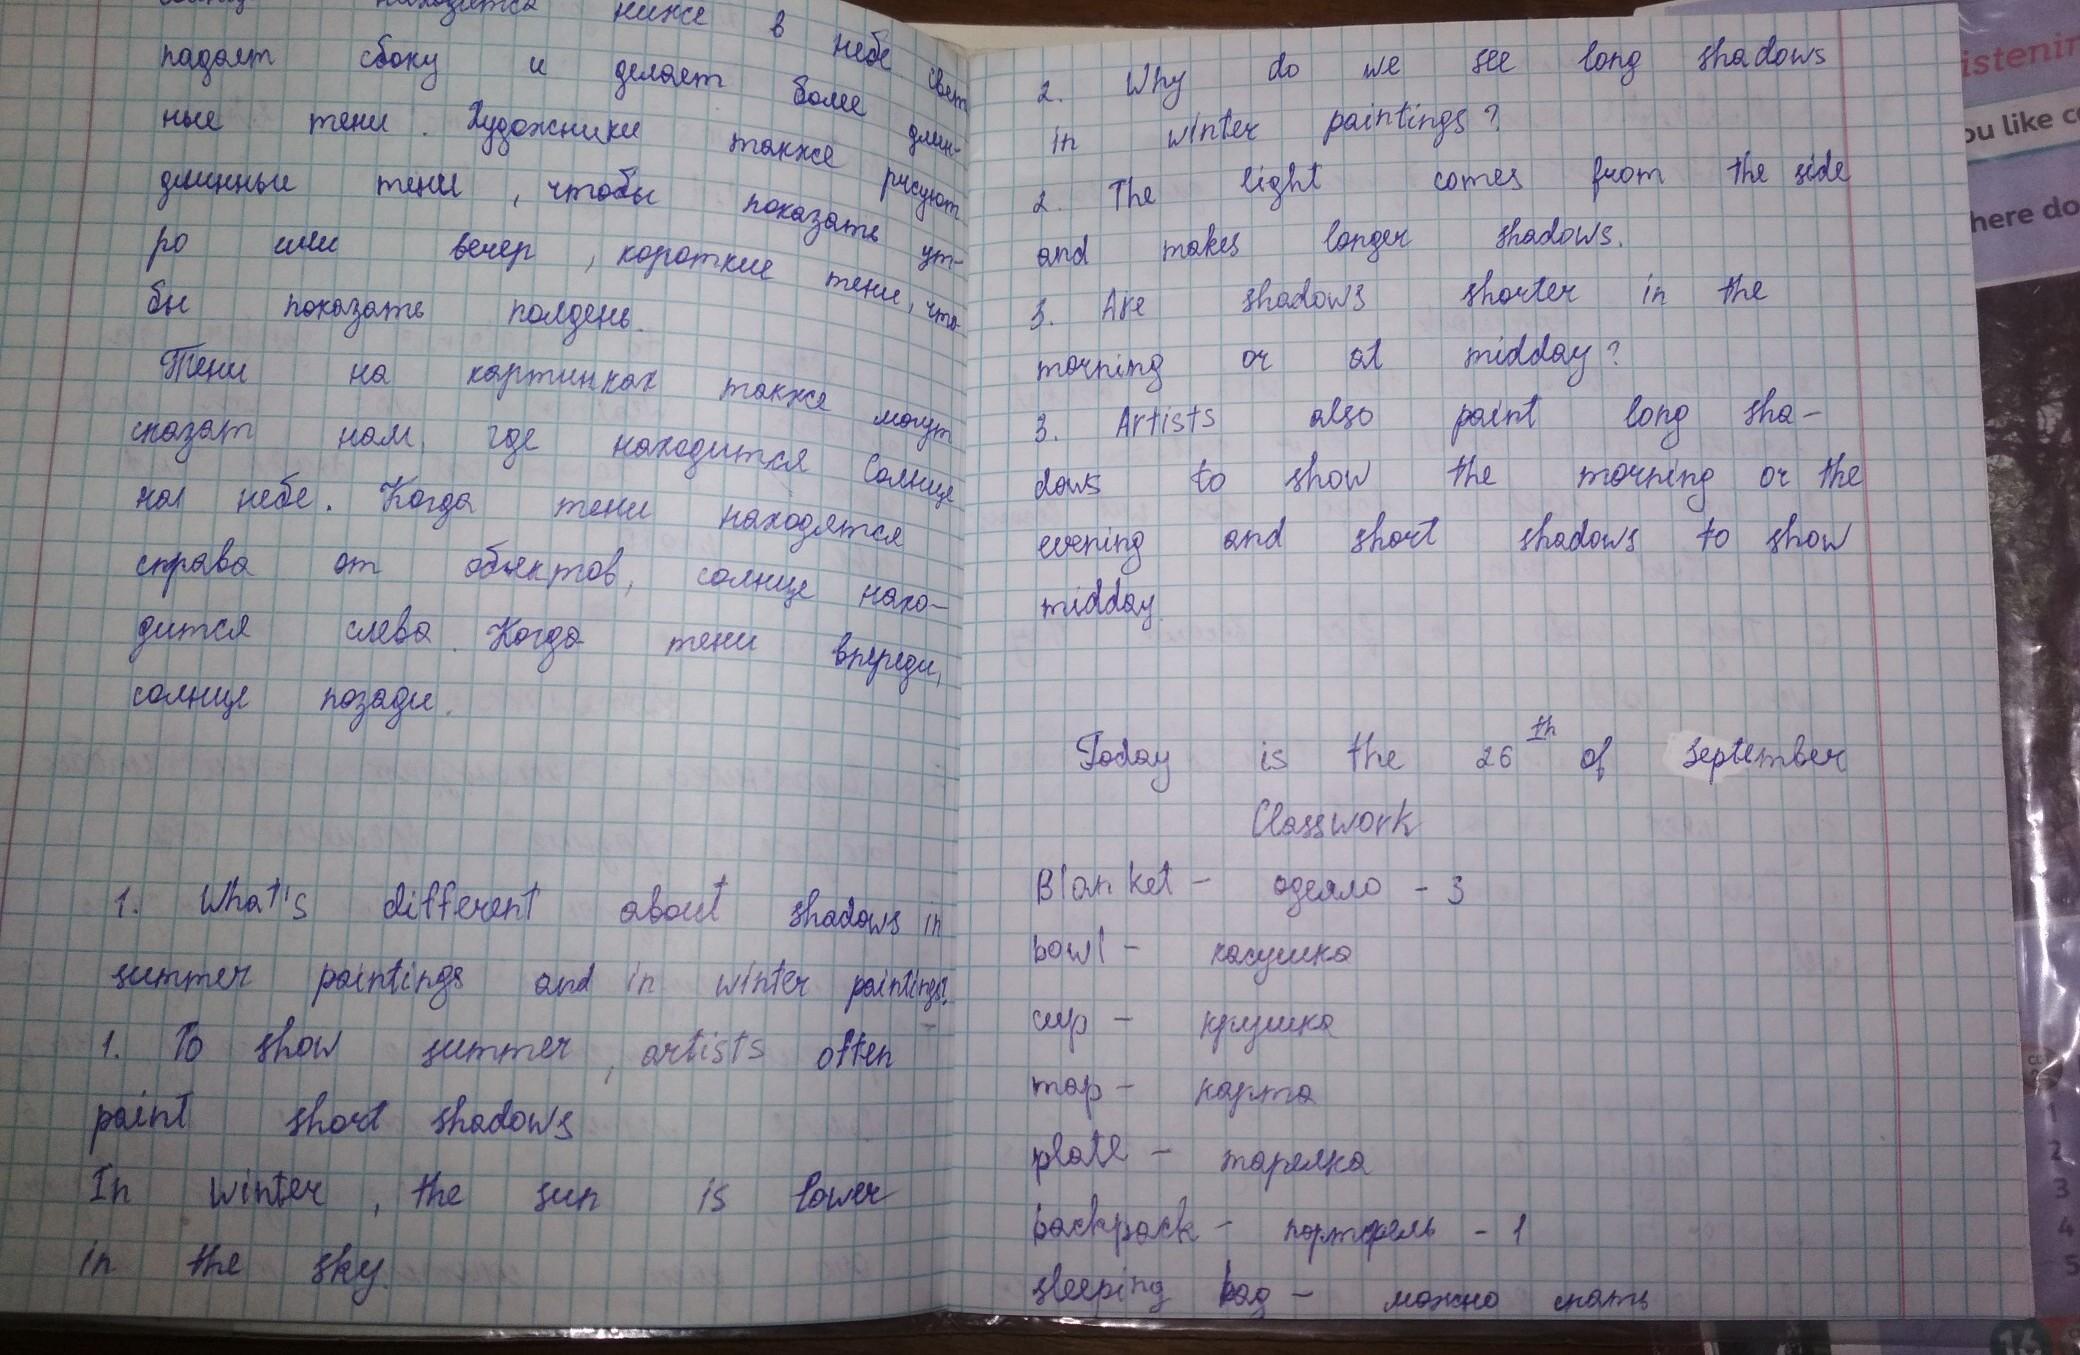 находится ниже в небе свет
падает сбоку и делает более длин-
ные тени. Художники также рисуют
длинные тени, чтобы показать ут-
ро или вечер, короткие тени, что
бы показать полдень.
Тени на картинках также могут
сказат нам, где находится Солнце
на небе. Когда тени находятся
справа от объектов, солнце нахо-
дится слева. Когда тени впереди,
солнце позади.
1. What's different about shadows in
summer paintings and in winter paintings?
1. To show summer, artists often
paint short shadows
In winter, the sun is lower
in the sky.
2. Why do we see long shadows
in winter paintings?
2. The light comes from the side
and makes longer shadows.
3. Are shadows shorter in the
morning or at midday?
3. Artists also paint long sha-
dows to show the morning or the
evening and short shadows to show
midday.
Today is the 26th of September
Classwork
Blanket - одеяло - 3
bowl - касушка
cup - крушка
map - карта
plate - тарелка
backpack - портфель - 1
sleeping bag - можно спать
istenin
ou like co
here do
1
2
3
4
5
16